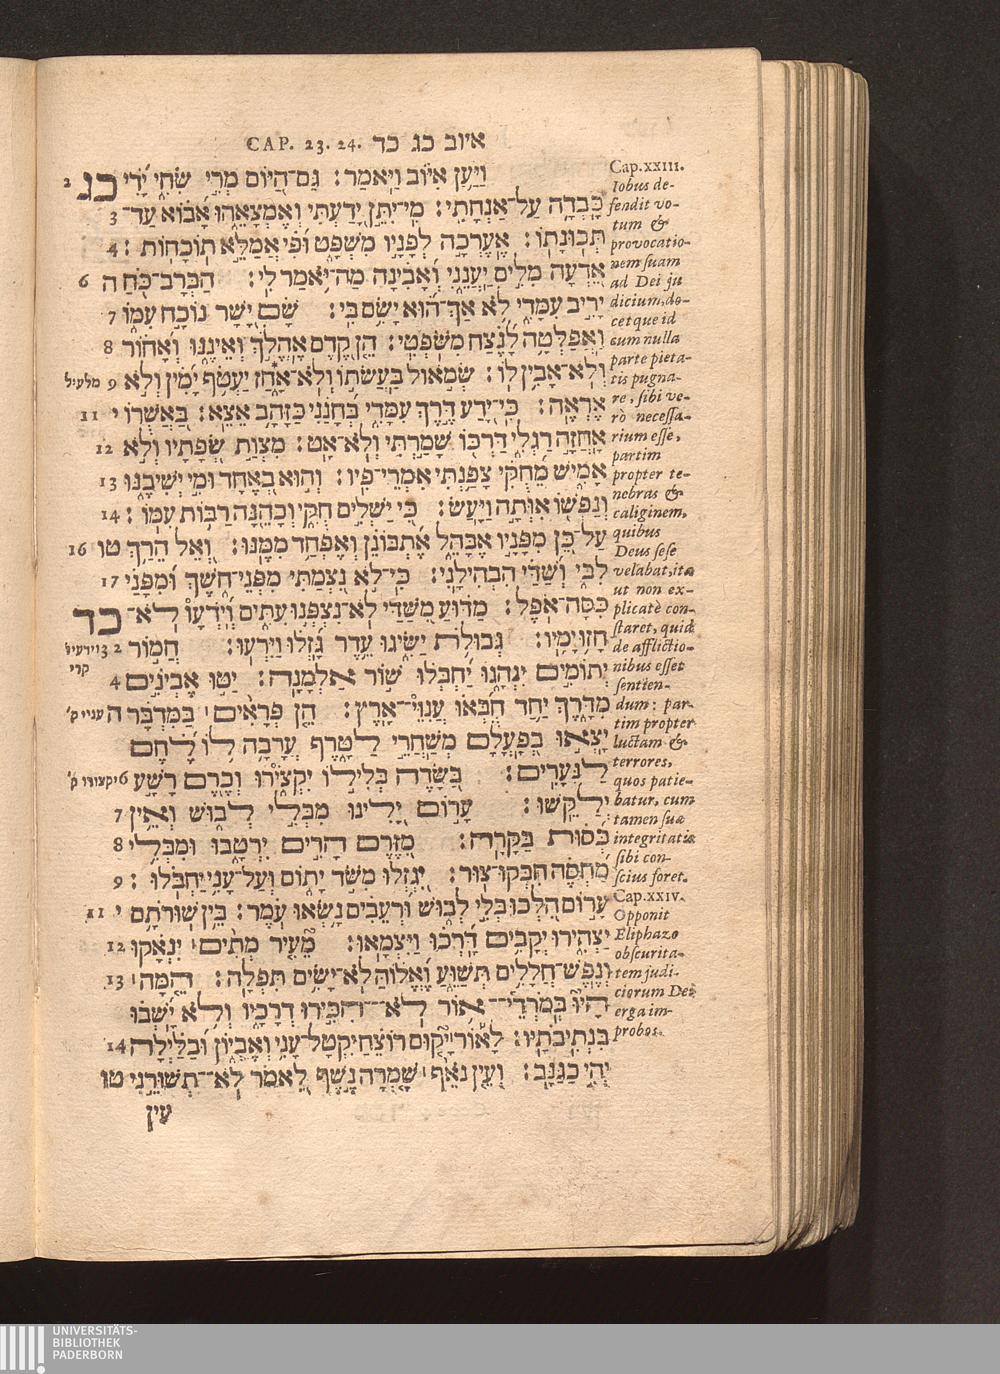 CAP. 23. 24. איוב כג כד
כג וַיַּעַן אִיּוֹב וַיֹּאמַר׃ גַּם־הַיּוֹם מְרִי שִׂחִי יָדִי 2
כָּבְדָה עַל־אַנְחָתִי׃ מִי־יִתֵּן יָדַעְתִּי וְאֶמְצָאֵהוּ אָבוֹא עַד־ 3
תְּכוּנָתוֹ׃ אֶעֶרְכָה לְפָנָיו מִשְׁפָּט וּפִי אֲמַלֵּא תוֹכָחוֹת׃ 4
אֵדְעָה מִלִּים יַעֲנֵנִי וְאָבִינָה מַה־יֹּאמַר לִי׃ הַבְּרָב־כֹּחַ ה 6
יָרִיב עִמָּדִי לֹא אַךְ־הוּא יָשִׂם בִּי׃ שָׁם יָשָׁר נוֹכָח עִמּוֹ 7
וַאֲפַלְּטָה לָנֶצַח מִשֹּׁפְטִי׃ הֵן קֶדֶם אֶהֱלֹךְ וְאֵינֶנּוּ וְאָחוֹר 8
וְלֹא־אָבִין לוֹ׃ שְׂמֹאול בַּעֲשֹׂתוֹ וְלֹא־אָחַז יַעְטֹף יָמִין וְלֹא 9 מלעיל
אֶרְאֶה׃ כִּי־יָדַע דֶּרֶךְ עִמָּדִי בְּחָנַנִי כַּזָּהָב אֵצֵא׃ בַּאֲשֻׁרוֹ י 11
אָחֲזָה רַגְלִי דַּרְכּוֹ שָׁמַרְתִּי וְלֹא־אָט׃ מִצְוַת שְׂפָתָיו וְלֹא 12
אָמִישׁ מֵחֻקִּי צָפַנְתִּי אִמְרֵי־פִיו׃ וְהוּא בְאֶחָד וּמִי יְשִׁיבֶנּוּ 13
וְנַפְשׁוֹ אִוְּתָה וַיָּעַשׂ׃ כִּי יַשְׁלִים חֻקִּי וְכָהֵנָּה רַבּוֹת עִמּוֹ׃ 14
עַל־כֵּן מִפָּנָיו אֶבָּהֵל אֶתְבּוֹנֵן וְאֶפְחַד מִמֶּנּוּ׃ וְאֵל הֵרַךְ טו 16
לִבִּי וְשַׁדַּי הִבְהִילָנִי׃ כִּי־לֹא נִצְמַתִּי מִפְּנֵי־חֹשֶׁךְ וּמִפָּנַי 17
כִּסָּה־אֹפֶל׃ מַדּוּעַ מִשַּׁדַּי לֹא־נִצְפְּנוּ עִתִּים וְיֹדְעָו לֹא־ כד
חָזוּ יָמָיו׃ גְּבוּלֹת יַשִּׂיגוּ עֵדֶר גָּזְלוּ וַיִּרְעוּ׃ חֲמוֹר 2 3
יְתוֹמִים יִנְהָגוּ יַחְבְּלוּ שׁוֹר אַלְמָנָה׃ יַטּוּ אֶבְיֹנִים 4 קרי
מִדָּרֶךְ יַחַד חֻבְּאוּ עֲנִוֵּי־אָרֶץ׃ הֵן פְּרָאִים בַּמִּדְבָּר ה עניי ק׳
יָצְאוּ בְּפָעֳלָם מְשַׁחֲרֵי לַטָּרֶף עֲרָבָה לוֹ לֶחֶם
לַנְּעָרִים׃ בַּשָּׂדֶה בְּלִילוֹ יִקְצֹירוּ וְכֶרֶם רָשָׁע 6 יקצורו ק׳
יְלַקֵּשׁוּ׃ עָרוֹם יָלִינוּ מִבְּלִי לְבוּשׁ וְאֵין 7
כְּסוּת בַּקָּרָה׃ מִזֶּרֶם הָרִים יִרְטָבוּ וּמִבְּלִי 8
מַחְסֶה חִבְּקוּ־צוּר׃ יִגְזְלוּ מִשֹּׁד יָתוֹם וְעַל־עָנִי יַחְבֹּלוּ׃ 9
עָרוֹם הִלְּכוּ בְּלִי לְבוּשׁ וּרְעֵבִים נָשְׂאוּ עֹמֶר׃ בֵּין שׁוּרֹתָם י 11
יַצְהִירוּ יְקָבִים דָּרְכוּ וַיִּצְמָאוּ׃ מֵעִיר מְתִים יִנְאָקוּ 12
וְנֶפֶשׁ־חֲלָלִים תְּשַׁוֵּעַ וֶאֱלוֹהַּ לֹא־יָשִׂים תִּפְלָה׃ הֵמָּה 13
הָיוּ בְּמֹרְדֵי־אוֹר לֹא־הִכִּירוּ דְרָכָיו וְלֹא יָשְׁבוּ
בִּנְתִיבֹתָיו׃ לָאוֹר יָקוּם רוֹצֵחַ יִקְטָל־עָנִי וְאֶבְיוֹן וּבַלַּיְלָה 14
יְהִי כַגַּנָּב׃ וְעֵין נֹאֵף שָׁמְרָה נֶשֶׁף לֵאמֹר לֹא־תְשׁוּרֵנִי טו
עין
Cap. xxiii.
Iobus de-
fendit vo-
tum &
provocatio-
nem suam
ad Dei ju
dicium, do-
cet que id
cum nulla
parte pieta-
tis pugna-
re, sibi ve-
rò necessa-
rium esse,
partim
propter te-
nebras &
caliginem,
quibus
Deus sese
velabat, ita
ut non ex-
plicatè con-
staret, quid
de afflictio-
nibus esset
sentien-
dum: par-
tim propter
luctam &
terrores,
quos patie-
batur, cum
tamen suæ
integritatis
sibi con-
scius foret.
Cap. xxiv.
Opponit
Eliphazo
obscurita-
tem judi-
ciorum Dei
erga im-
probos.
UNIVERSITÄTS-
BIBLIOTHEK
PADERBORN